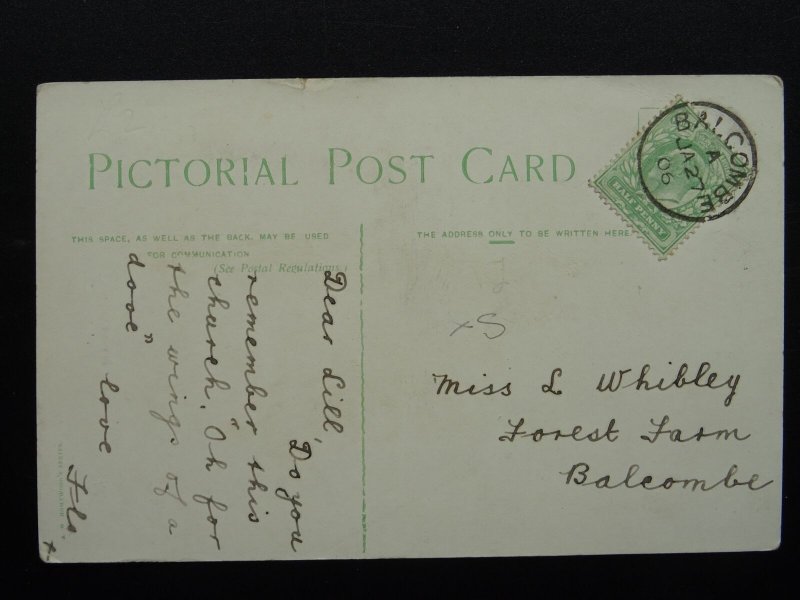 PICTORIAL POST CARD
THIS SPACE, AS WELL AS THE BACK, MAY BE USED
FOR COMMUNICATION
(See Postal Regulations)
THE ADDRESS ONLY TO BE WRITTEN HERE
BALCOMBE
A
JA 27
06
HALF PENNY
Dear Lill,
Do you
remember this
church. "Oh for
the wings of a
dove"
love
Flo.
x
+S
Miss L Whibley
Forest Farm
Balcombe